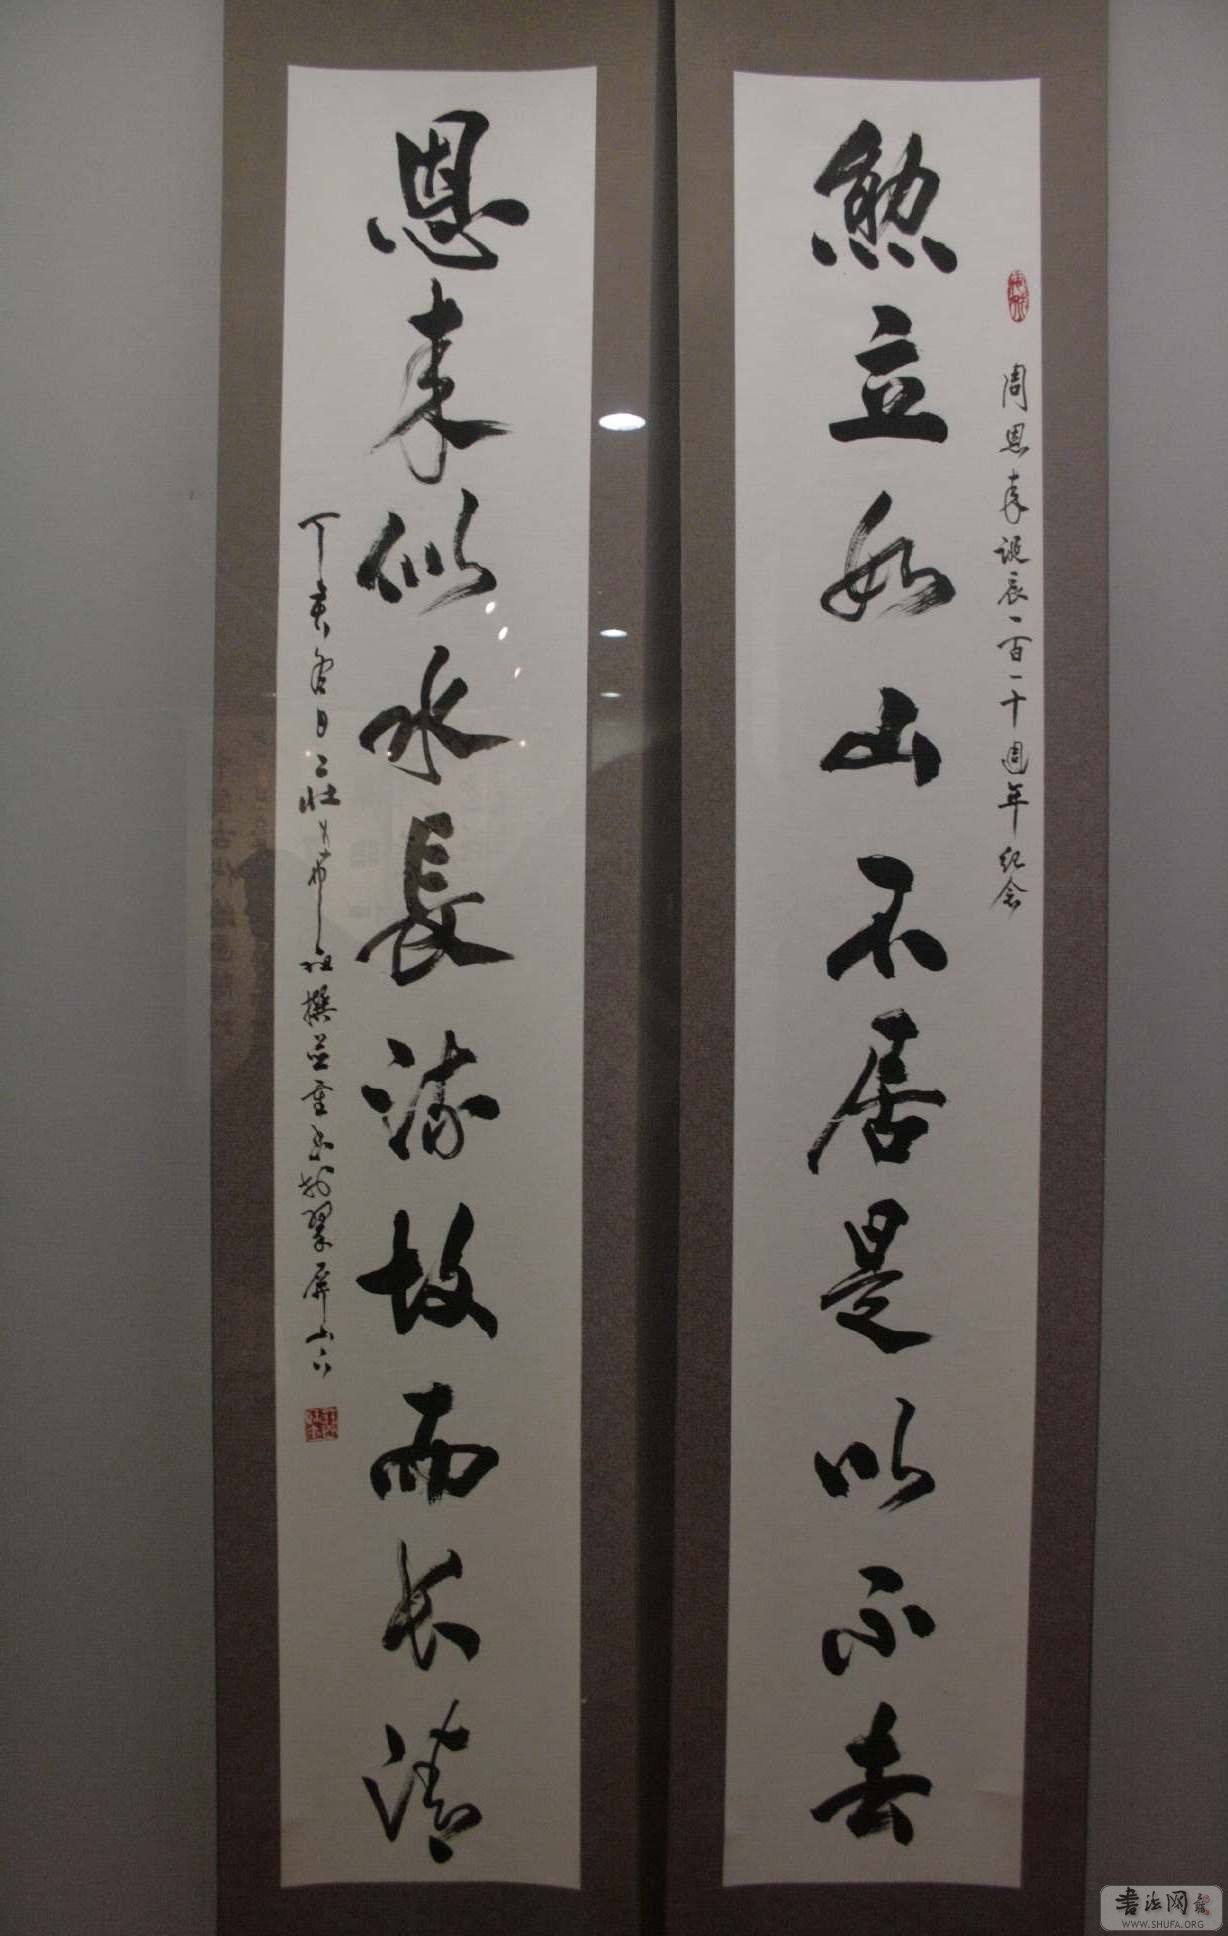 周恩来诞辰一百一十週年纪念
勲立如山不居是以不去
恩来似水長流故而长清
丁亥冬日二壮
撰並書于翠屏山下
書法网
WWW.SHUFA.ORG